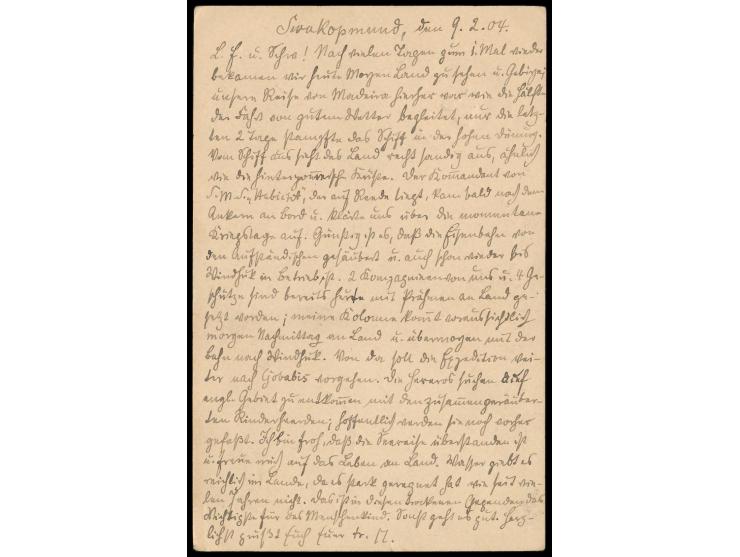 Swakopmund, den 9.2.04.
L. F. u. Schw! Nach vielen Tagen zum 1. Mal wieder
bekamen wir heute Morgen Land zu sehen u. Gebirge;
unsere Reise von Madeira hierher war wie die Hälfte
der Fahrt von gutem Wetter begleitet, nur die letz-
ten 2 Tage stampfte das Schiff in der hohen Dünung.
Vom Schiff aus sieht das Land recht sandig aus, ähnlich
wie die hinterpommersche Küste. Der Komandant von
S.M.S. „Habicht", der auf Reede liegt, kam bald nach dem
Ankern an Bord u. klärte uns über die momentane
Kriegslage auf. Günstig ist es, daß die Eisenbahn von
den Aufständischen gesäubert u. auch schon wieder bis
Windhuk in Betrieb ist. 2 Kompagnieen von uns u. 4 Ge-
schütze sind bereits heute mit Prähmen an Land ge-
setzt worden; meine Kolonne komt voraussichtlich
morgen Nachmittag an Land u. übermorgen mit der
Bahn nach Windhuk. Von da soll die Expedition wei-
ter nach Gobabis vorgehen. Die Hereros suchen auf
engl. Gebiet zu entkomen mit den zusamengeräuber-
ten Rinderheerden; hoffentlich werden sie noch vorher
gefaßt. Ich bin froh, daß die Seereise überstanden ist
u. freue mich auf das Leben an Land. Wasser giebt es
reichlich im Lande, da es stark geregnet hat wie seit vie-
len Jahren nicht. Das ist in diesen trockenen Gegenden das
Wichtigste für das Menschenkind. Sonst geht es gut. Herz-
lichst grüßt Euch Euer tr.